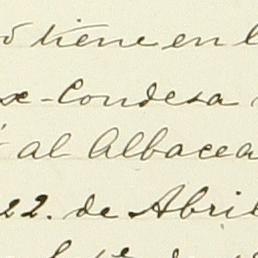 tiene en
ex-Condesa
al Albacea
22. de Abril